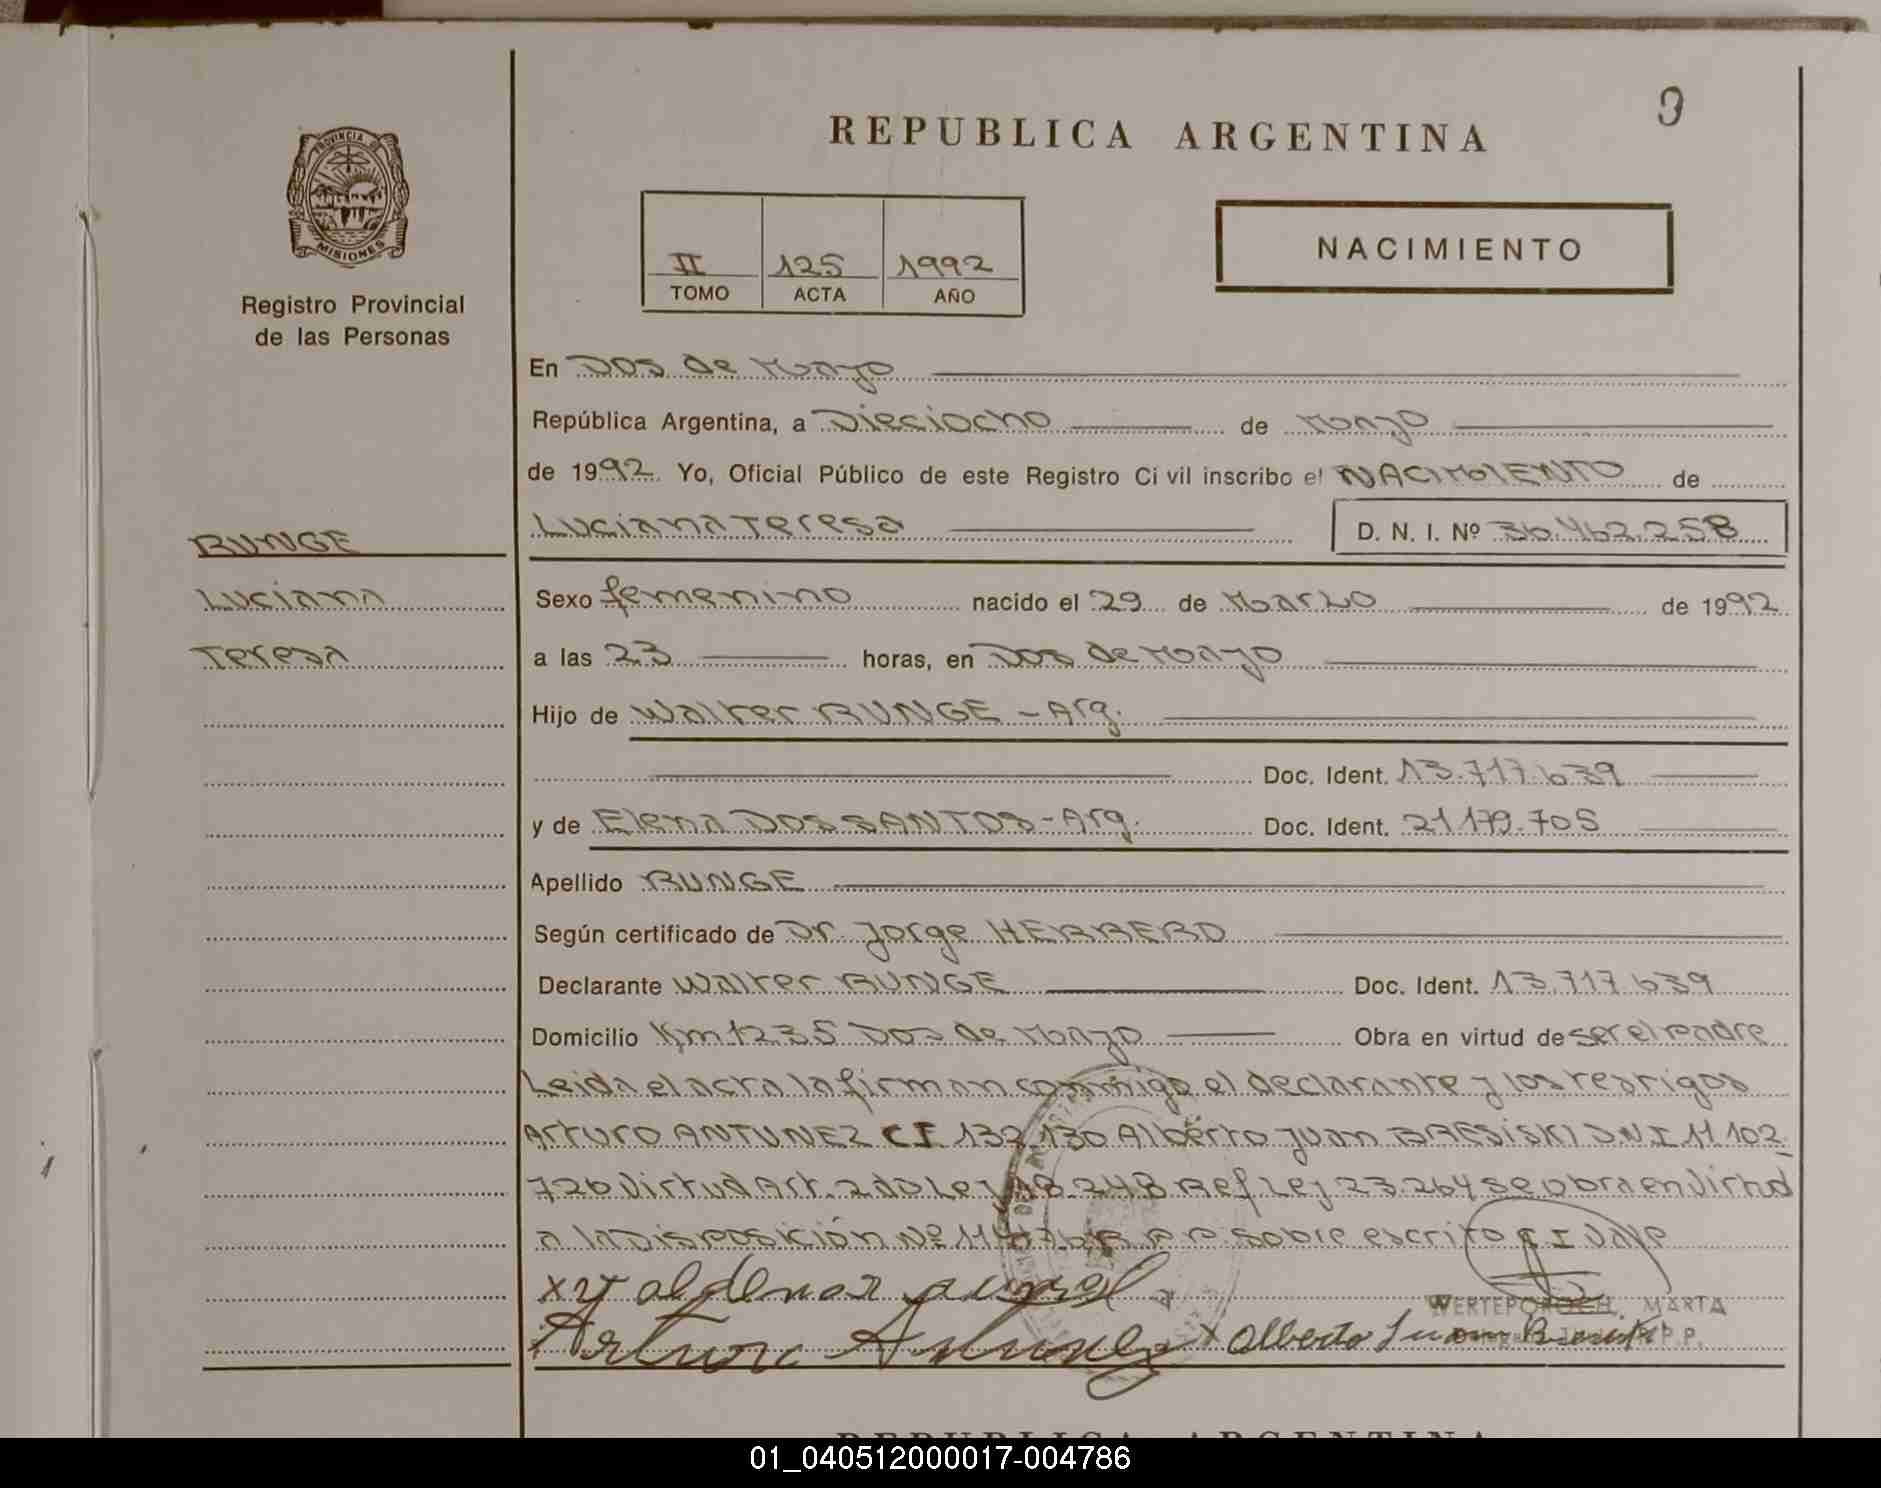 9
REPUBLICA ARGENTINA
PROVINCIA DE
MISIONES
Registro Provincial
de las Personas
II 125 1992
TOMO ACTA AÑO
NACIMIENTO
En Dos de Mayo
República Argentina, a Dieciocho de Mayo
de 1992 Yo, Oficial Público de este Registro Civil inscribo el NACIMIENTO de
RUNGE
Luciana Teresa D. N. I. Nº 36.462.258
Luciana
Sexo femenino nacido el 29 de Marzo de 1992
Teresa
a las 23 horas, en Dos de Mayo
Hijo de Walter RUNGE - Arg.
Doc. Ident. 13.717.639
y de Elena DOS SANTOS - Arg. Doc. Ident. 21.179.705
Apellido RUNGE
Según certificado de Dr. Jorge HERRERO
Declarante Walter RUNGE Doc. Ident. 13.717.639
Domicilio Km 1235 Dos de Mayo Obra en virtud de ser el padre
Leida el acta la firman conmigo el declarante y los testigos
Arturo ANTUNEZ CI 132.130 Alberto Juan BRESISKI D.N.I 11.102.
726 Virtud Art. 2do Ley 18.248 Ref Ley 23.264 se obra en virtud
a la Disposición Nº 11/76 R.P.P. sobre escrito CI Vale
WERTEPOROCH, MARTA
Arturo Antunez x Alberto Juan
REPUBLICA ARGENTINA
01_040512000017-004786